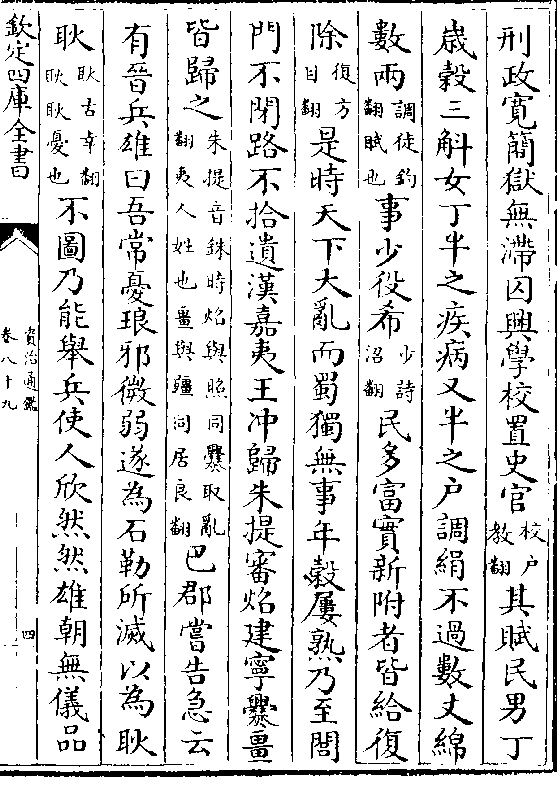 刑政寛簡獄無滯囚興學校置史官校户教翻其賦民男丁
歳榖三斛女丁半之疾病又半之户調絹不過數丈綿
數兩調徒釣翻賦也事少役希少詩沼翻民多富實新附者皆給復
除復方目翻是時天下大亂而蜀獨無事年榖屢熟乃至閭
門不閉路不拾遺漢嘉夷王冲歸朱提審炤建寧爨畺
皆歸之朱提音銖時炤與照同爨取亂翻夷人姓也畺與疆同居良翻巴郡嘗告急云
有晉兵雄曰吾常憂琅邪微弱遂為石勒所滅以為耿
耿耿古幸翻耿耿憂也不圖乃能舉兵使人欣然然雄朝無儀品
欽定四庫全書
資治通鑑
卷八十九
四